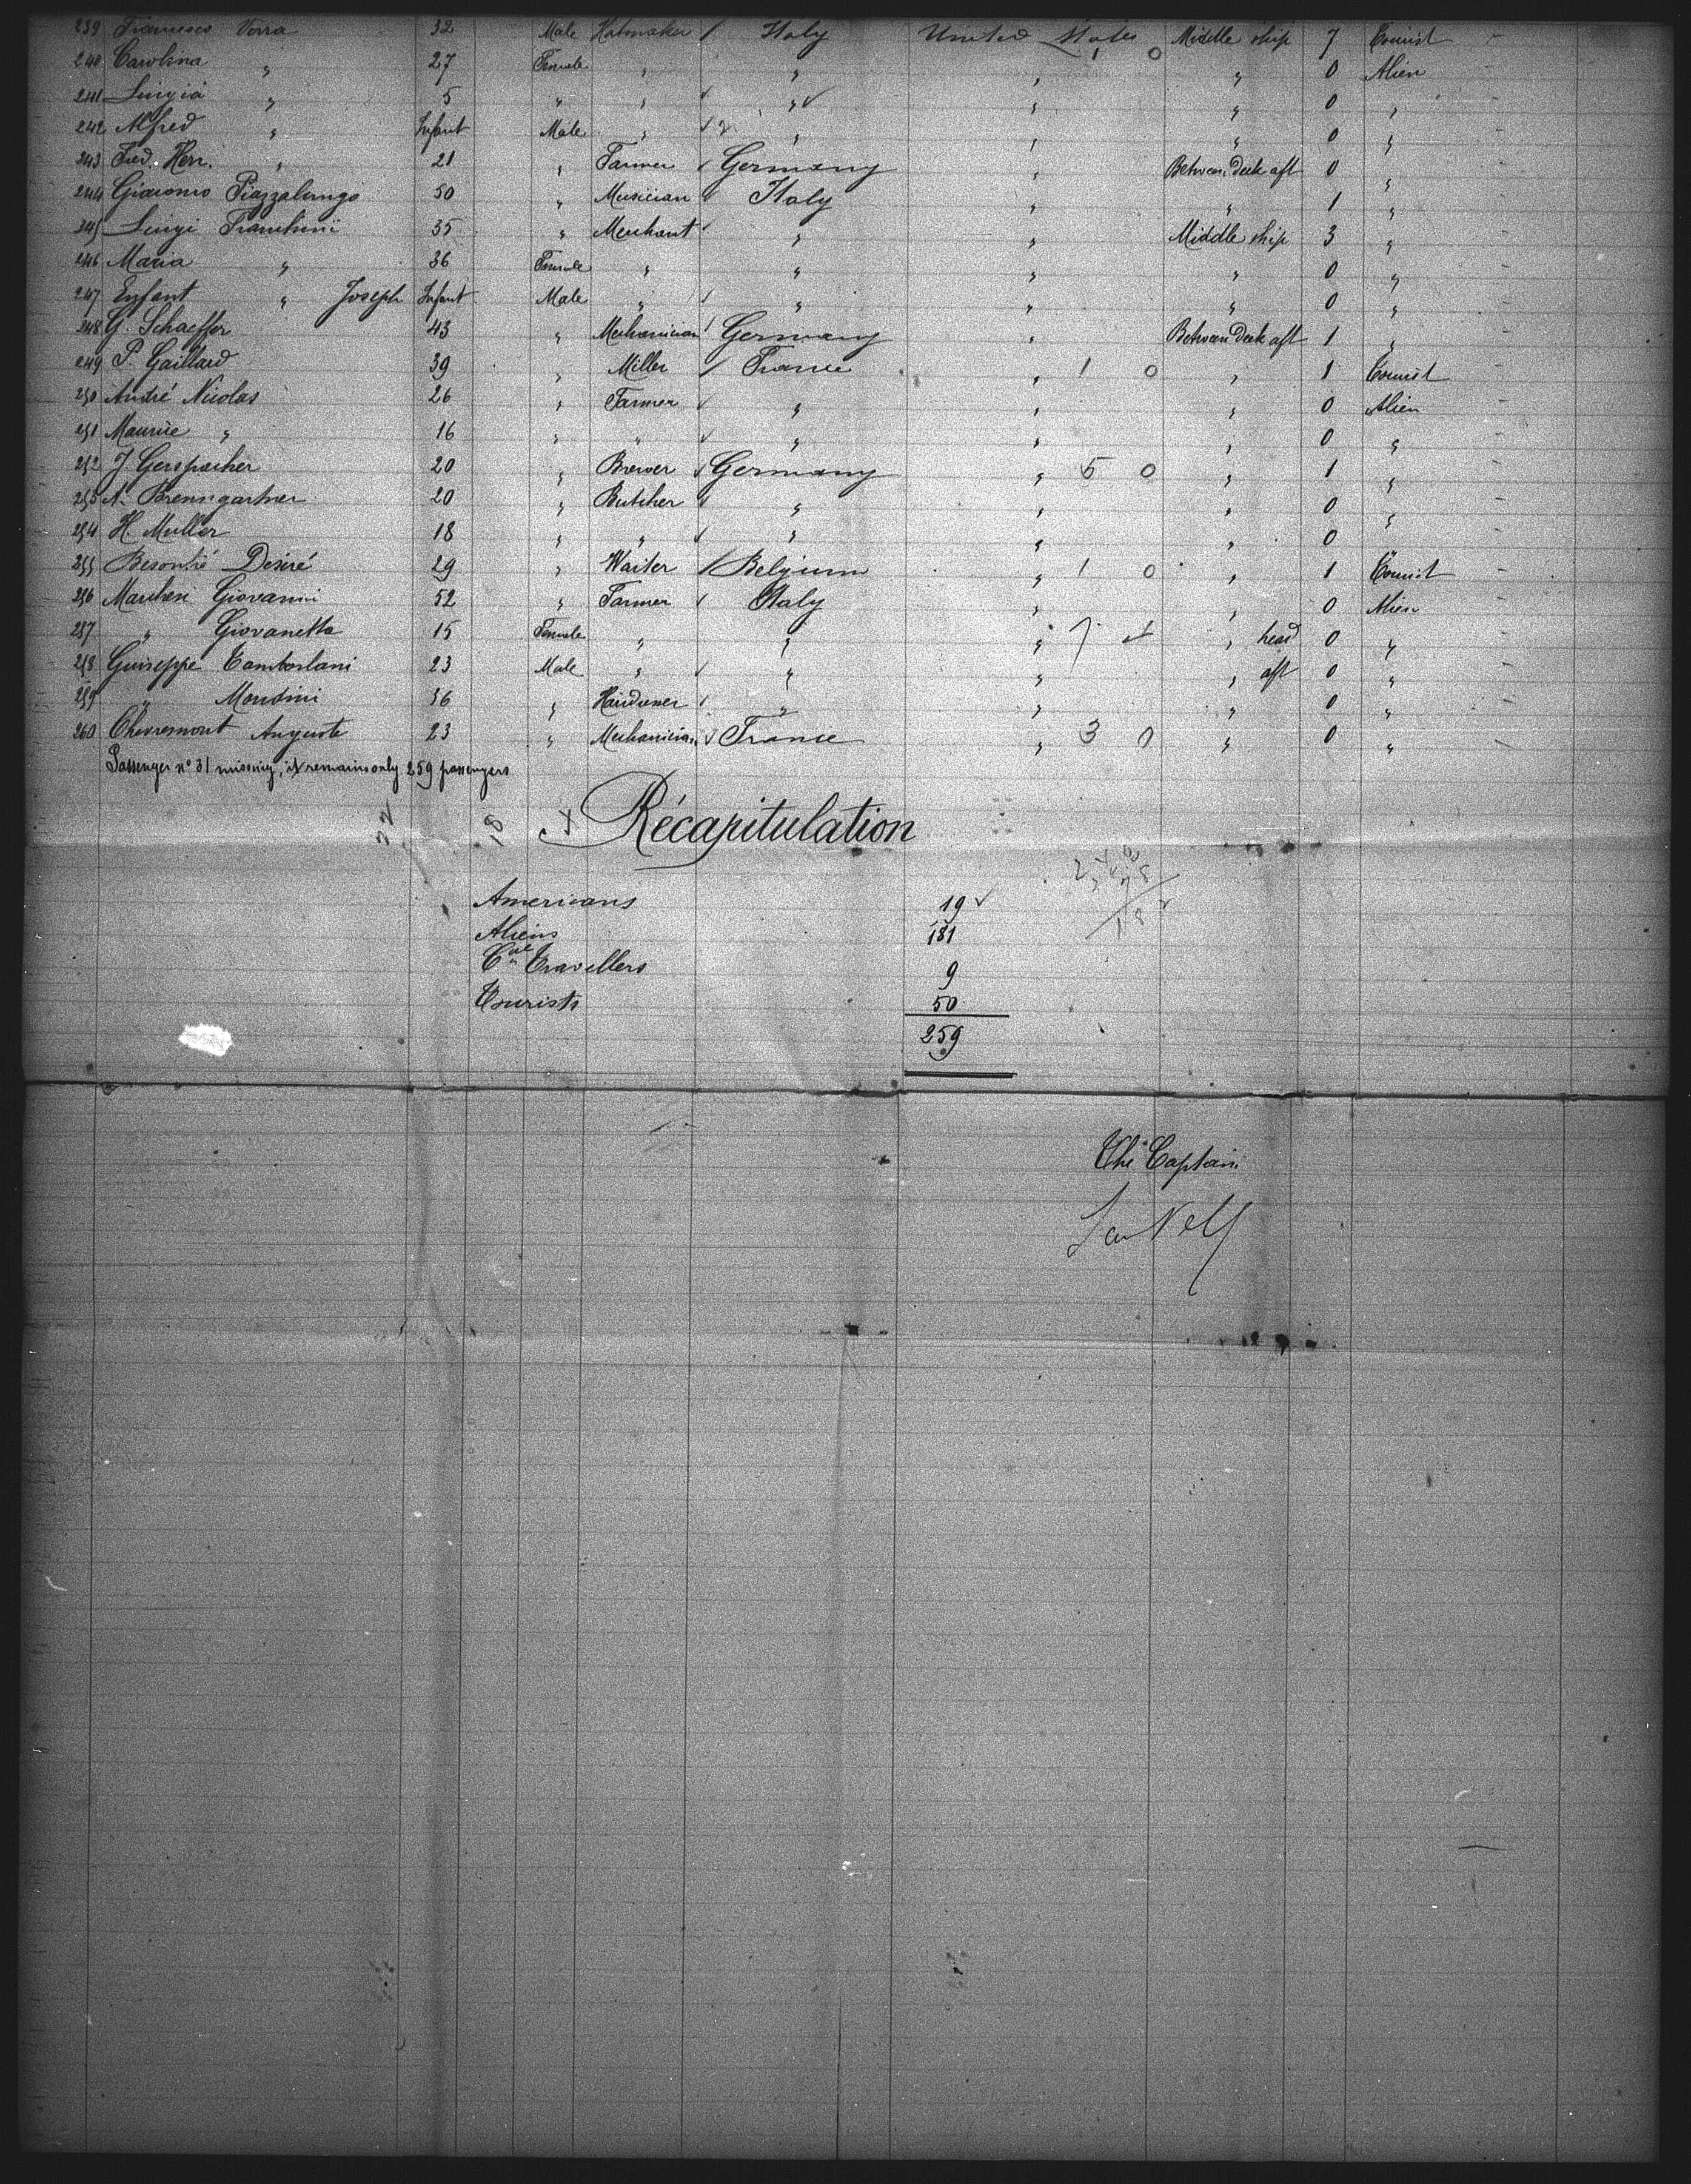 239 Francesco Verra 32 Male Hatmaker Italy United States 1 0 Middle ship 7 Tourist
240 Carolina " 27 Female " " " " 0 Alien
241 Luigia " 5 " " " " " 0 "
242 Alfred " Infant Male " " " " 0 "
243 Fred. Herr. " 21 " Farmer Germany " Between Deck aft 0 "
244 Giacomo Piazzalunga 50 " Musician Italy " " 1 "
245 Luigi Franchini 35 " Merchant " " Middle ship 3 "
246 Maria " 36 Female " " " " 0 "
247 Enfant " Joseph Infant Male " " " " 0 "
248 G. Schaeffer 43 " Mechanician Germany " Between Deck aft 1 "
249 P. Gaillard 39 " Miller France " 1 0 " 1 Tourist
250 André Nicolas 26 " Farmer " " " 0 Alien
251 Maurice " 16 " " " " " 0 "
252 J. Gerspacher 20 " Brewer Germany " 5 0 " 1 "
253 A. Bremgartner 20 " Butcher " " " 0 "
254 H. Muller 18 " " " " " 0 "
255 Besontié Désiré 29 " Waiter Belgium " 1 0 " 1 Tourist
256 Marchen Giovanni 52 " Farmer Italy " " 0 Alien
257 " Giovanetta 15 Female " " " 7 " head 0 "
258 Guiseppe Tamborlani 23 Male " " " " aft 0 "
259 " Mondini 36 " " " " 0 "
260 Chevremont Auguste 23 " Mechanician France " 3 0 " 0 "
Passenger n° 31 missing, it remains only 259 passengers
Récapitulation
Americans 19
Aliens 181
Cial Travellers 9
Tourists 50
259
The Captain